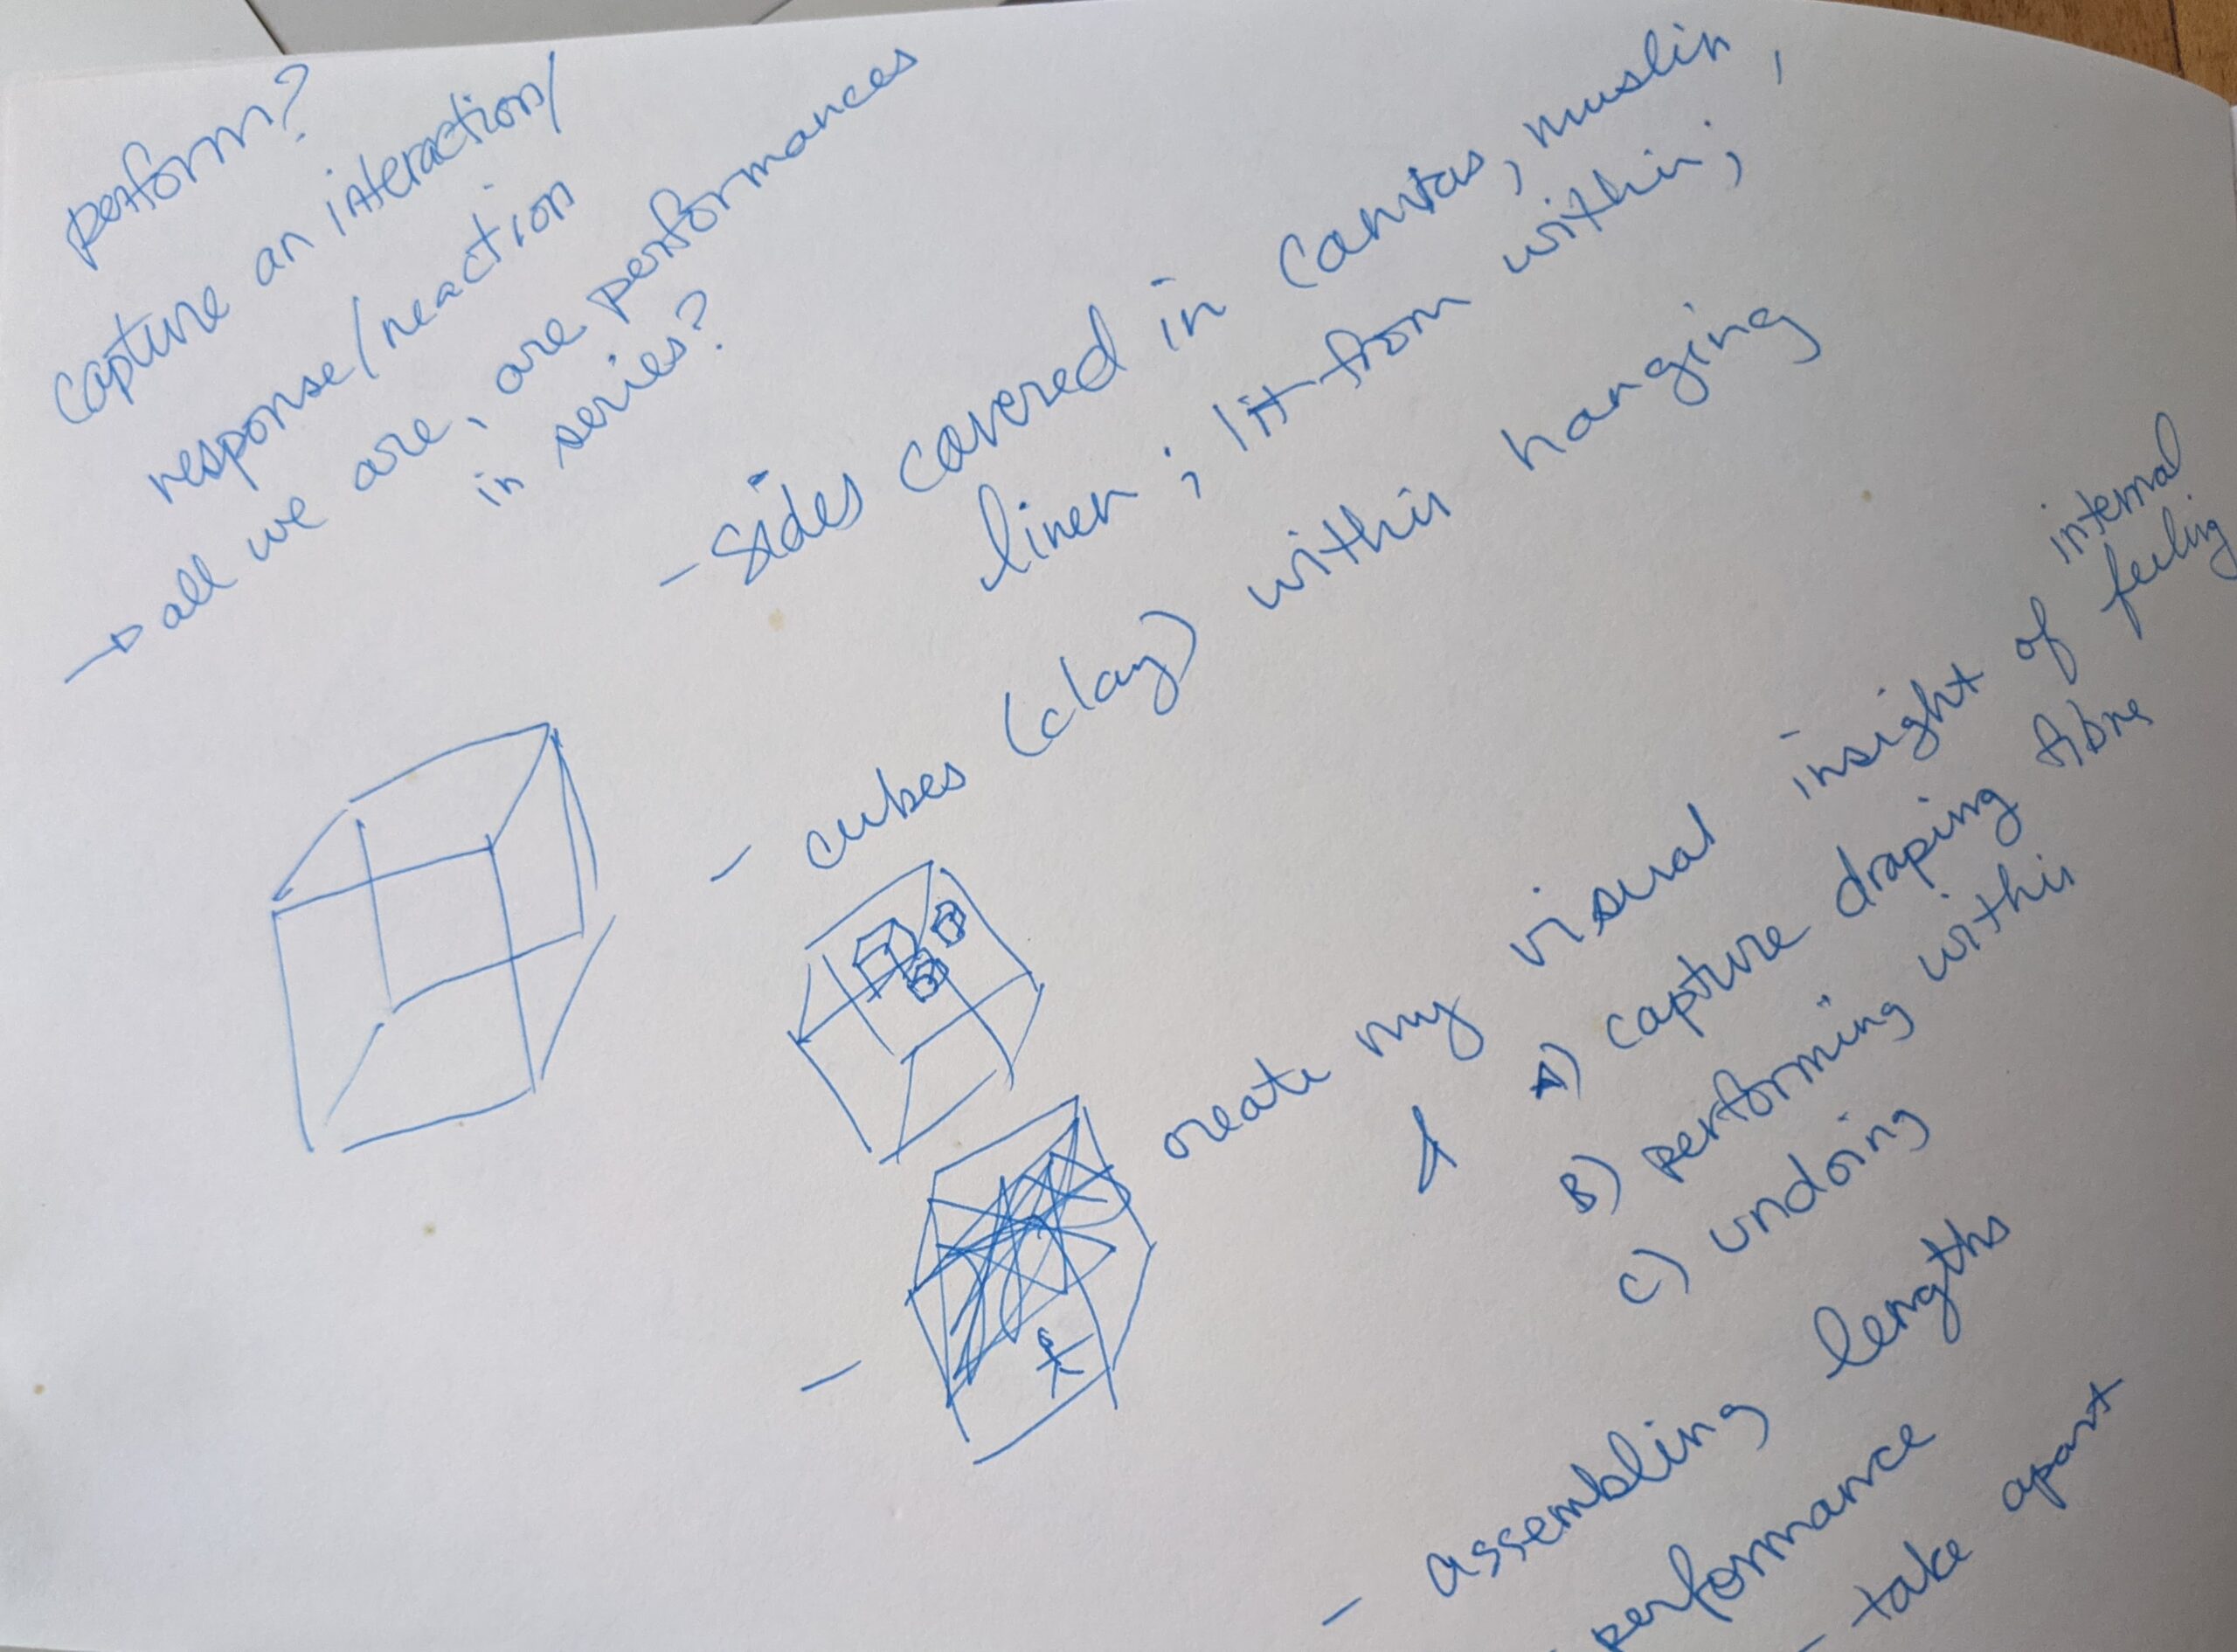 perform?
capture an interaction/
response/reaction
→ all we are, are performances
in series?
- sides covered in canvas, muslin,
linen; lit from within;
- cubes (clay) within hanging
- create my visual insight of internal
feeling
& A) capture draping fibre
B) performing within
C) undoing
- assembling lengths
performance
- take apart